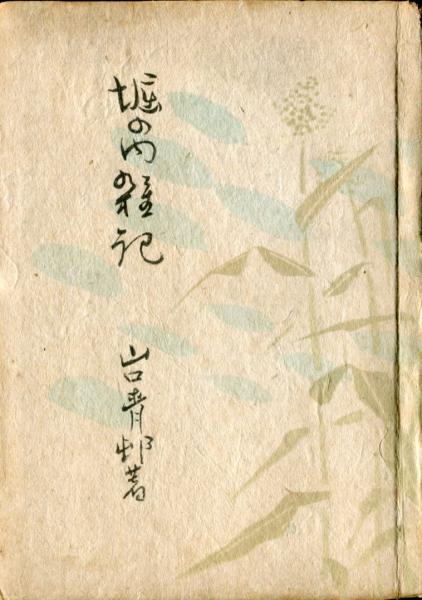 堀の内雑記
山口青邨著